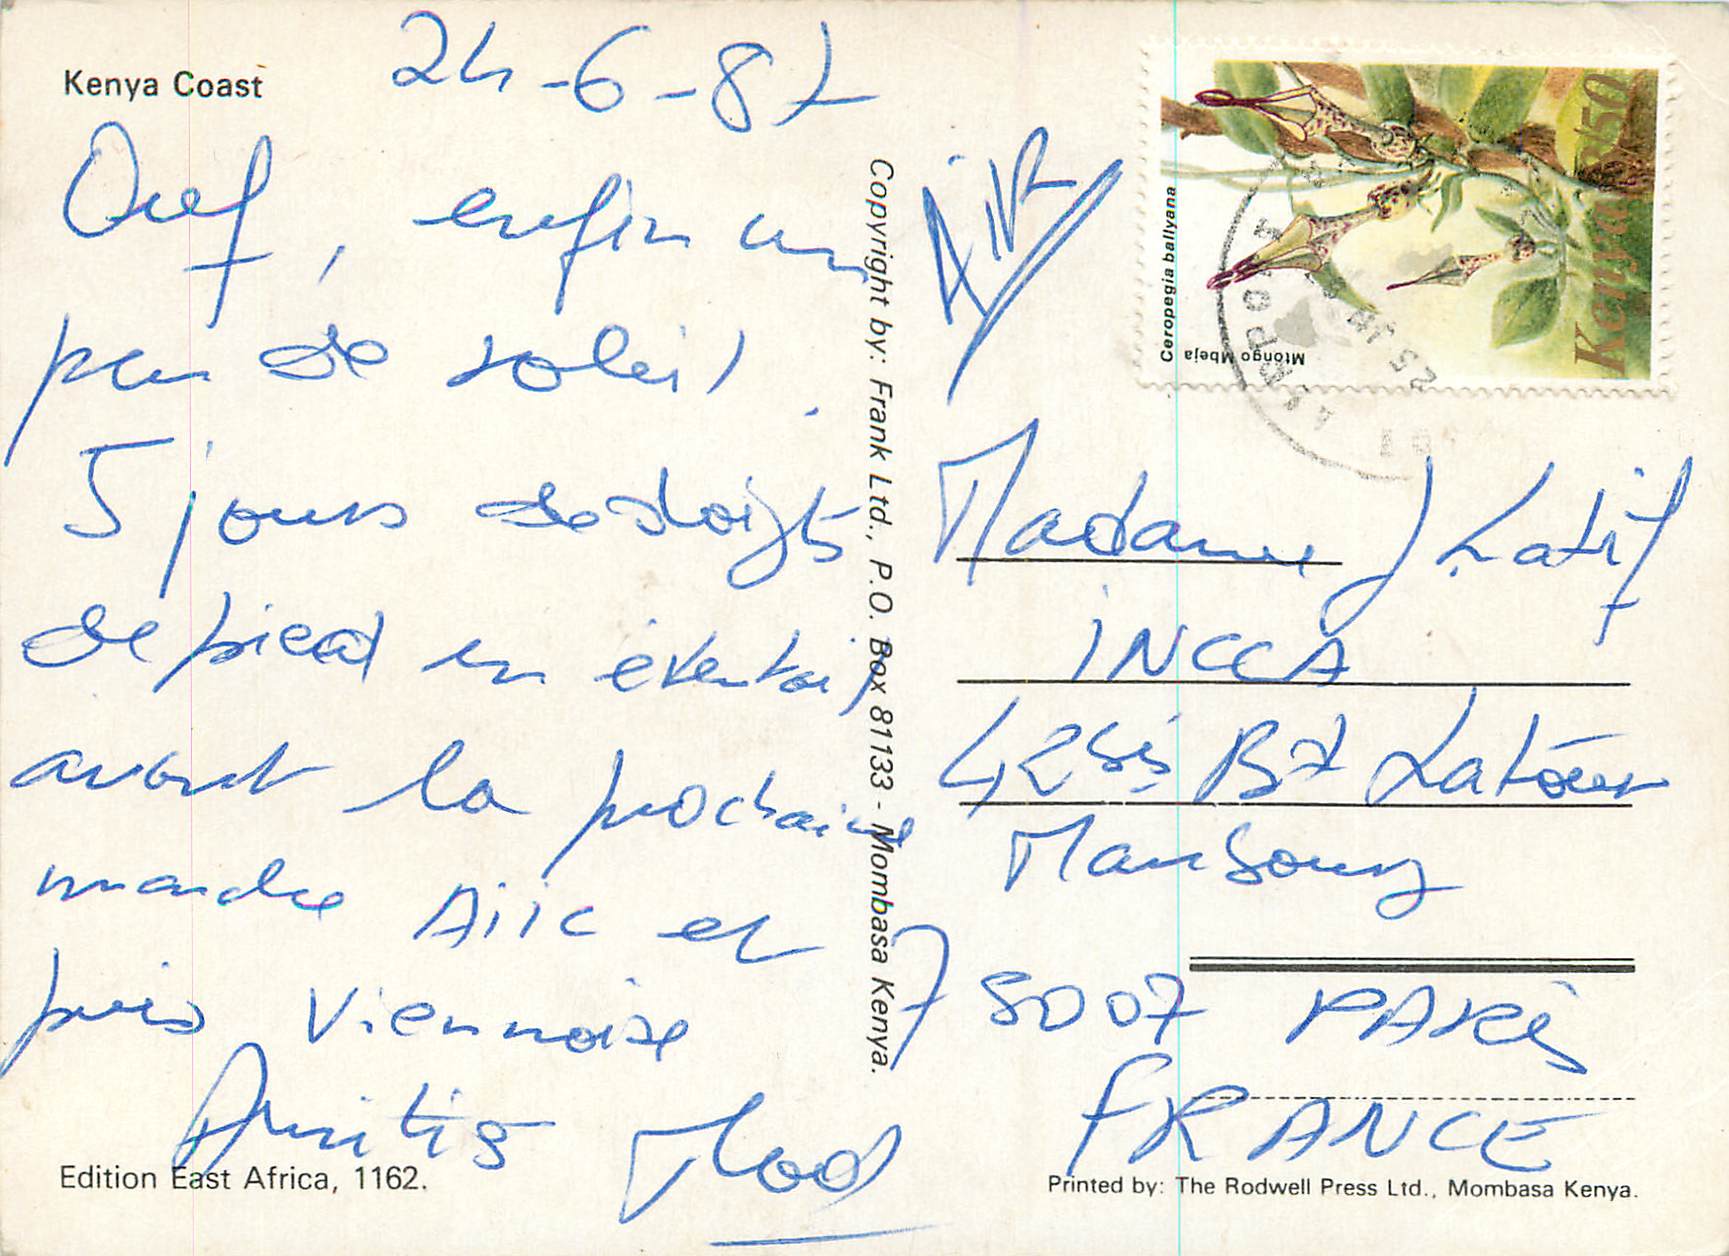 Kenya Coast
24-6-87
Ouf, enfin un
peu de soleil.
5 jours de doigts
de pied en éventail
avant la prochaine
marche AIIC et
puis Viennoise
Amitiés Mod
Edition East Africa, 1162.
Copyright by: Frank Ltd., P.O. Box 81133 - Mombasa Kenya.
AIR
Kenya 3/50
Ceropegia ballyana
Mtongo Mbeja
AIRPORT
25 JN
Madame J Latif
INCCA
42 bis Bd Latour
Maubourg
75007 PARIS
FRANCE
Printed by: The Rodwell Press Ltd., Mombasa Kenya.